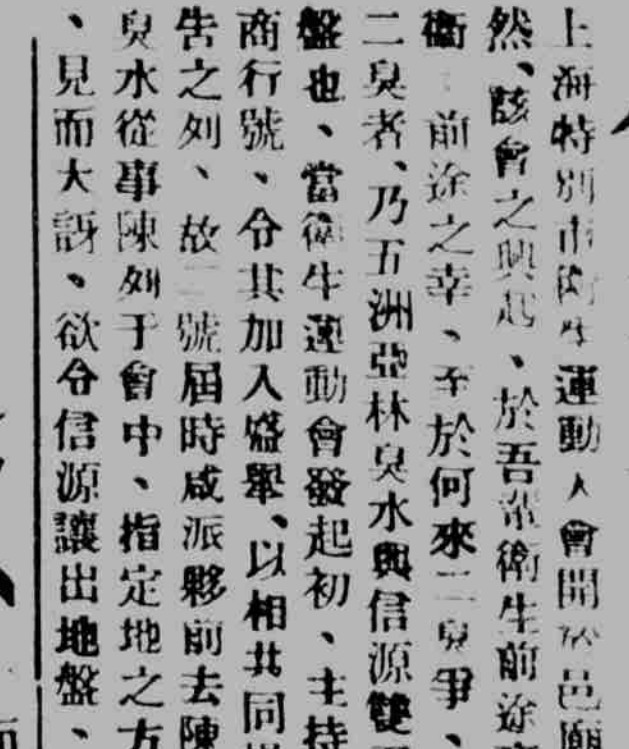 上海特別市衛生運動大會開於邑廟
然、該會之興起、於吾輩衛生前途
衞前途之幸、至於何來二臭爭、
二臭者、乃五洲亞林臭水與信源雙
盤也、當衛生運動會發起初、主持
商行號、令其加入盛舉、以相共同
告之列、故二號屆時咸派夥前去陳
臭水從事陳列于會中、指定地之方
、見而大訝、欲令信源讓出地盤、